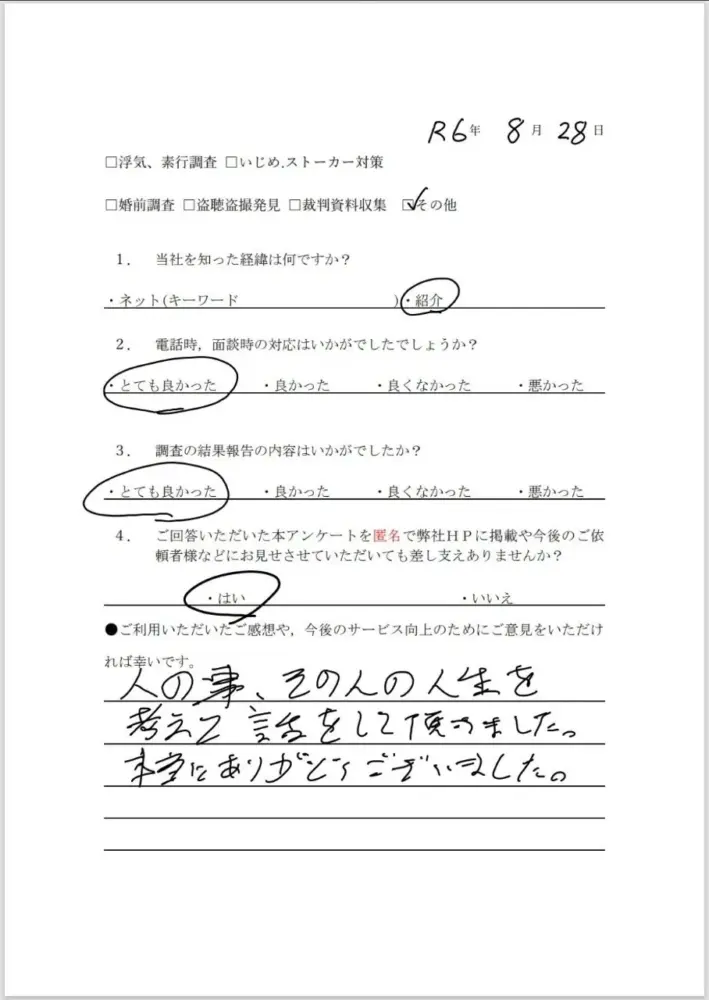 R6年 8月 28日
□浮気、素行調査 □いじめ.ストーカー対策
□婚前調査 □盗聴盗撮発見 □裁判資料収集 ☑その他
1. 当社を知った経緯は何ですか？
・ネット(キーワード )・紹介
2. 電話時，面談時の対応はいかがでしたでしょうか？
・とても良かった ・良かった ・良くなかった ・悪かった
3. 調査の結果報告の内容はいかがでしたか？
・とても良かった ・良かった ・良くなかった ・悪かった
4. ご回答いただいた本アンケートを匿名で弊社ＨＰに掲載や今後のご依
頼者様などにお見せさせていただいても差し支えありませんか？
・はい ・いいえ
●ご利用いただいたご感想や，今後のサービス向上のためにご意見をいただけ
れば幸いです。
人の事、その人の人生を
考えて話をして頂きました。
本当にありがとうございました。